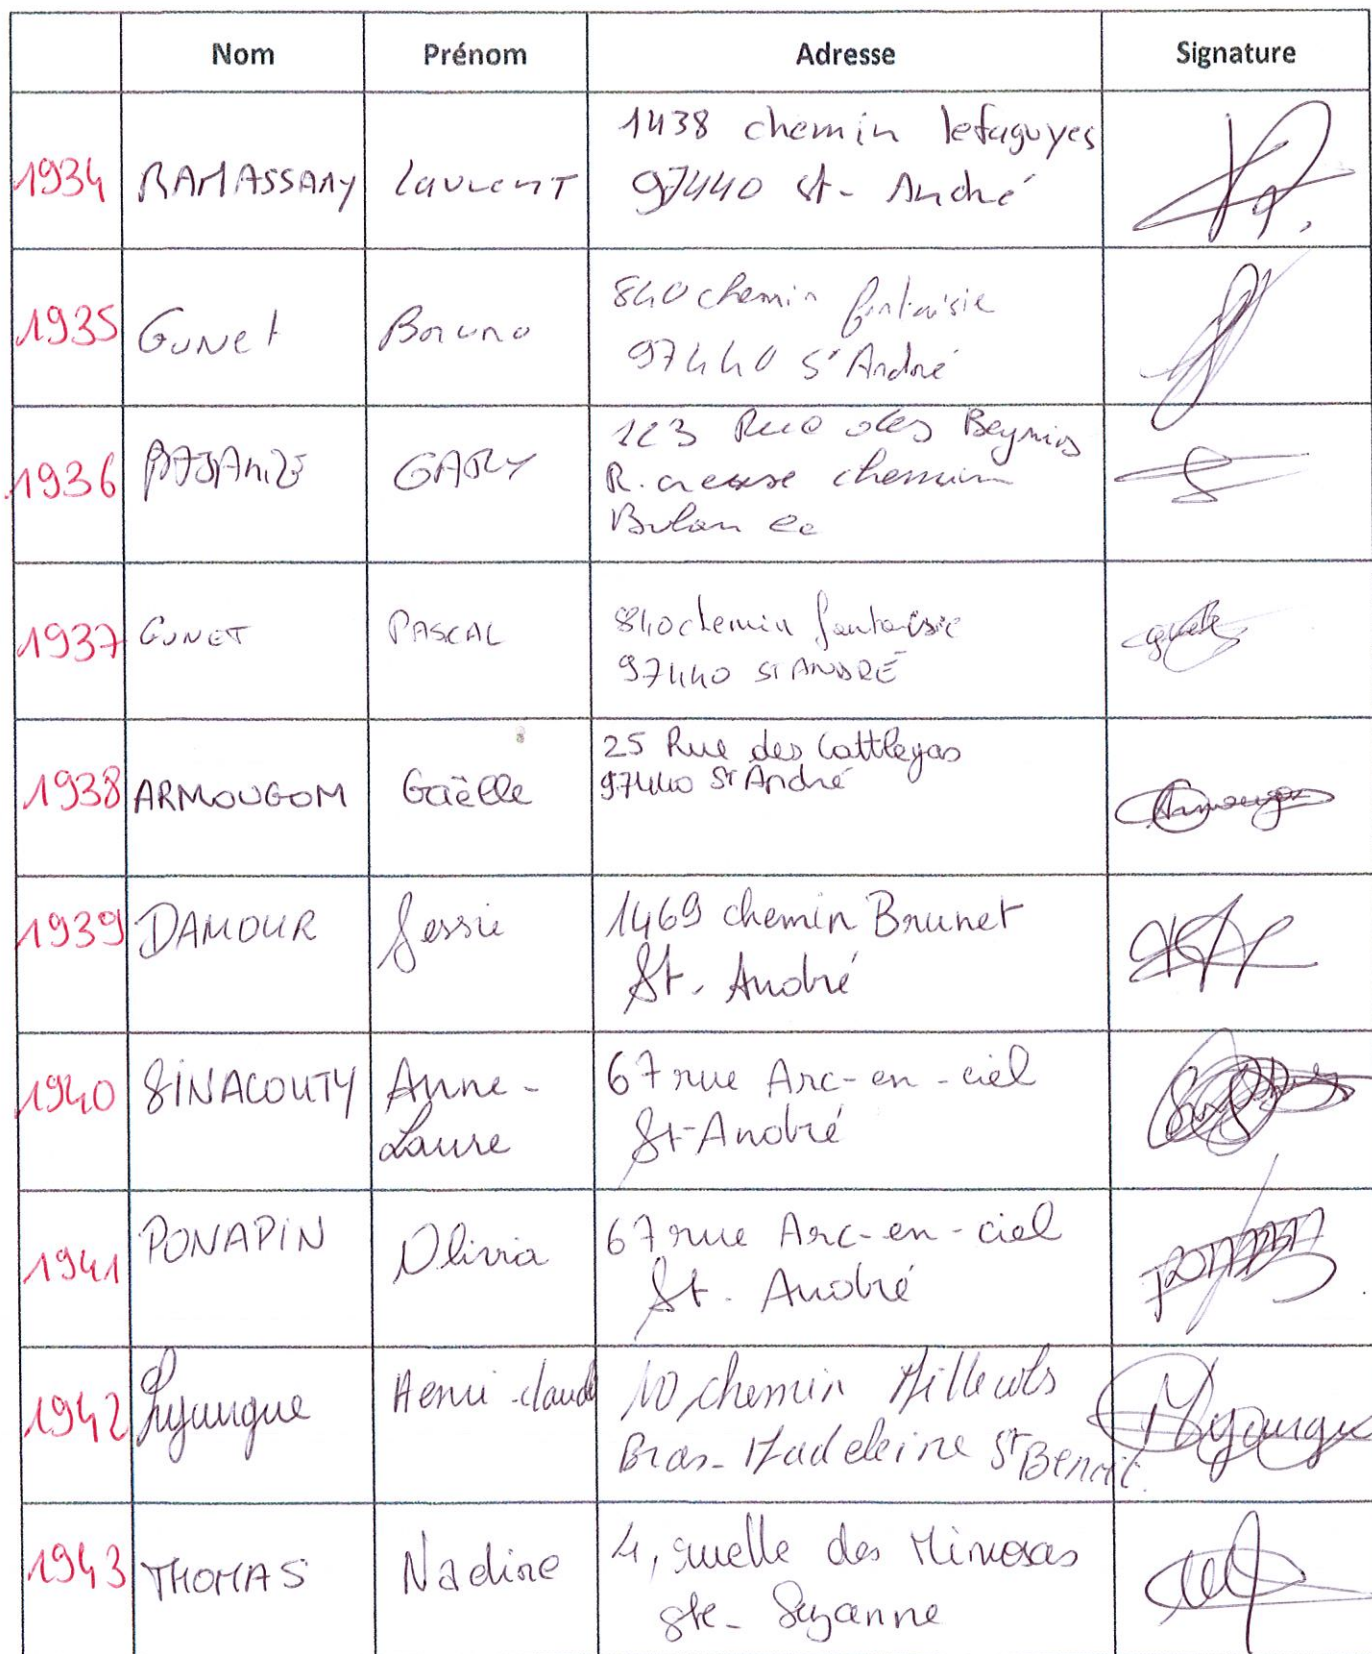 Nom Prénom Adresse Signature
1934 RAMASSAMY Laurent 1438 chemin lefaguyes
97440 St - André
1935 GUNET Bruno 840 chemin fantaisie
97440 St André
1936 GARY 123 Rue des
R. creuse chemin
1937 GUNET PASCAL 840 chemin fantaisie
97440 St ANDRÉ
1938 ARMOUGOM Gaëlle 25 Rue des Cattleyas
97440 St André
1939 DAMOUR Jessie 1469 chemin Brunet
St. André
1940 SINACOUTY Anne - 67 rue Arc-en-ciel
Laure St-André
1941 PONAPIN Olivia 67 rue Arc-en-ciel
St. André
1942 Henri-claude 10 chemin
Bras-Madeleine St Benoit
1943 THOMAS Nadine 4, ruelle des Mimosas
Ste- Suzanne